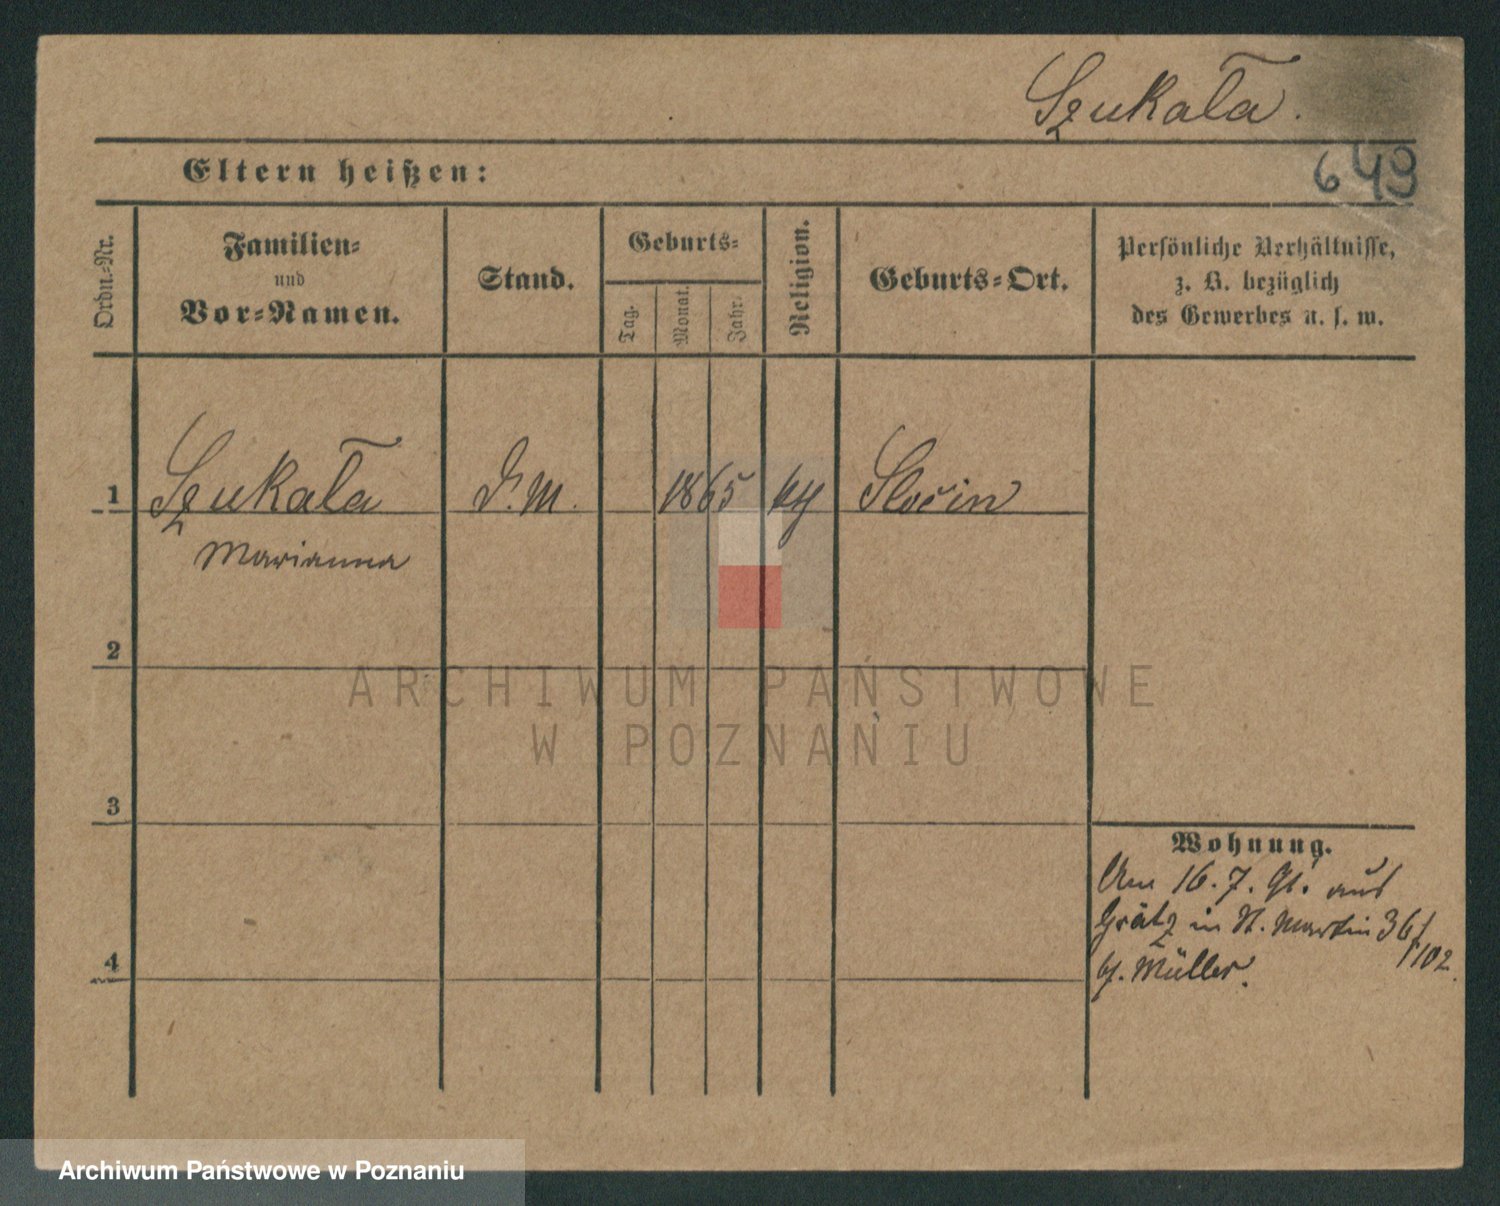 Szukała.
649
Eltern heißen:
Ordn.-Nr.
Familien-
und
Vor-Namen.
Stand.
Geburts-
Tag.
Monat.
Jahr.
Religion.
Geburts-Ort.
Persönliche Verhältnisse,
z. B. bezüglich
des Gewerbes u. s. w.
1 Szukała D.M. 1865 Słocin
Marianna
2
ARCHIWUM PAŃSTWOWE
W POZNANIU
3
Wohnung.
Am 16.7.91. aus
Grätz in St. Martin 36/
102.
4
b. Müller.
Archiwum Państwowe w Poznaniu